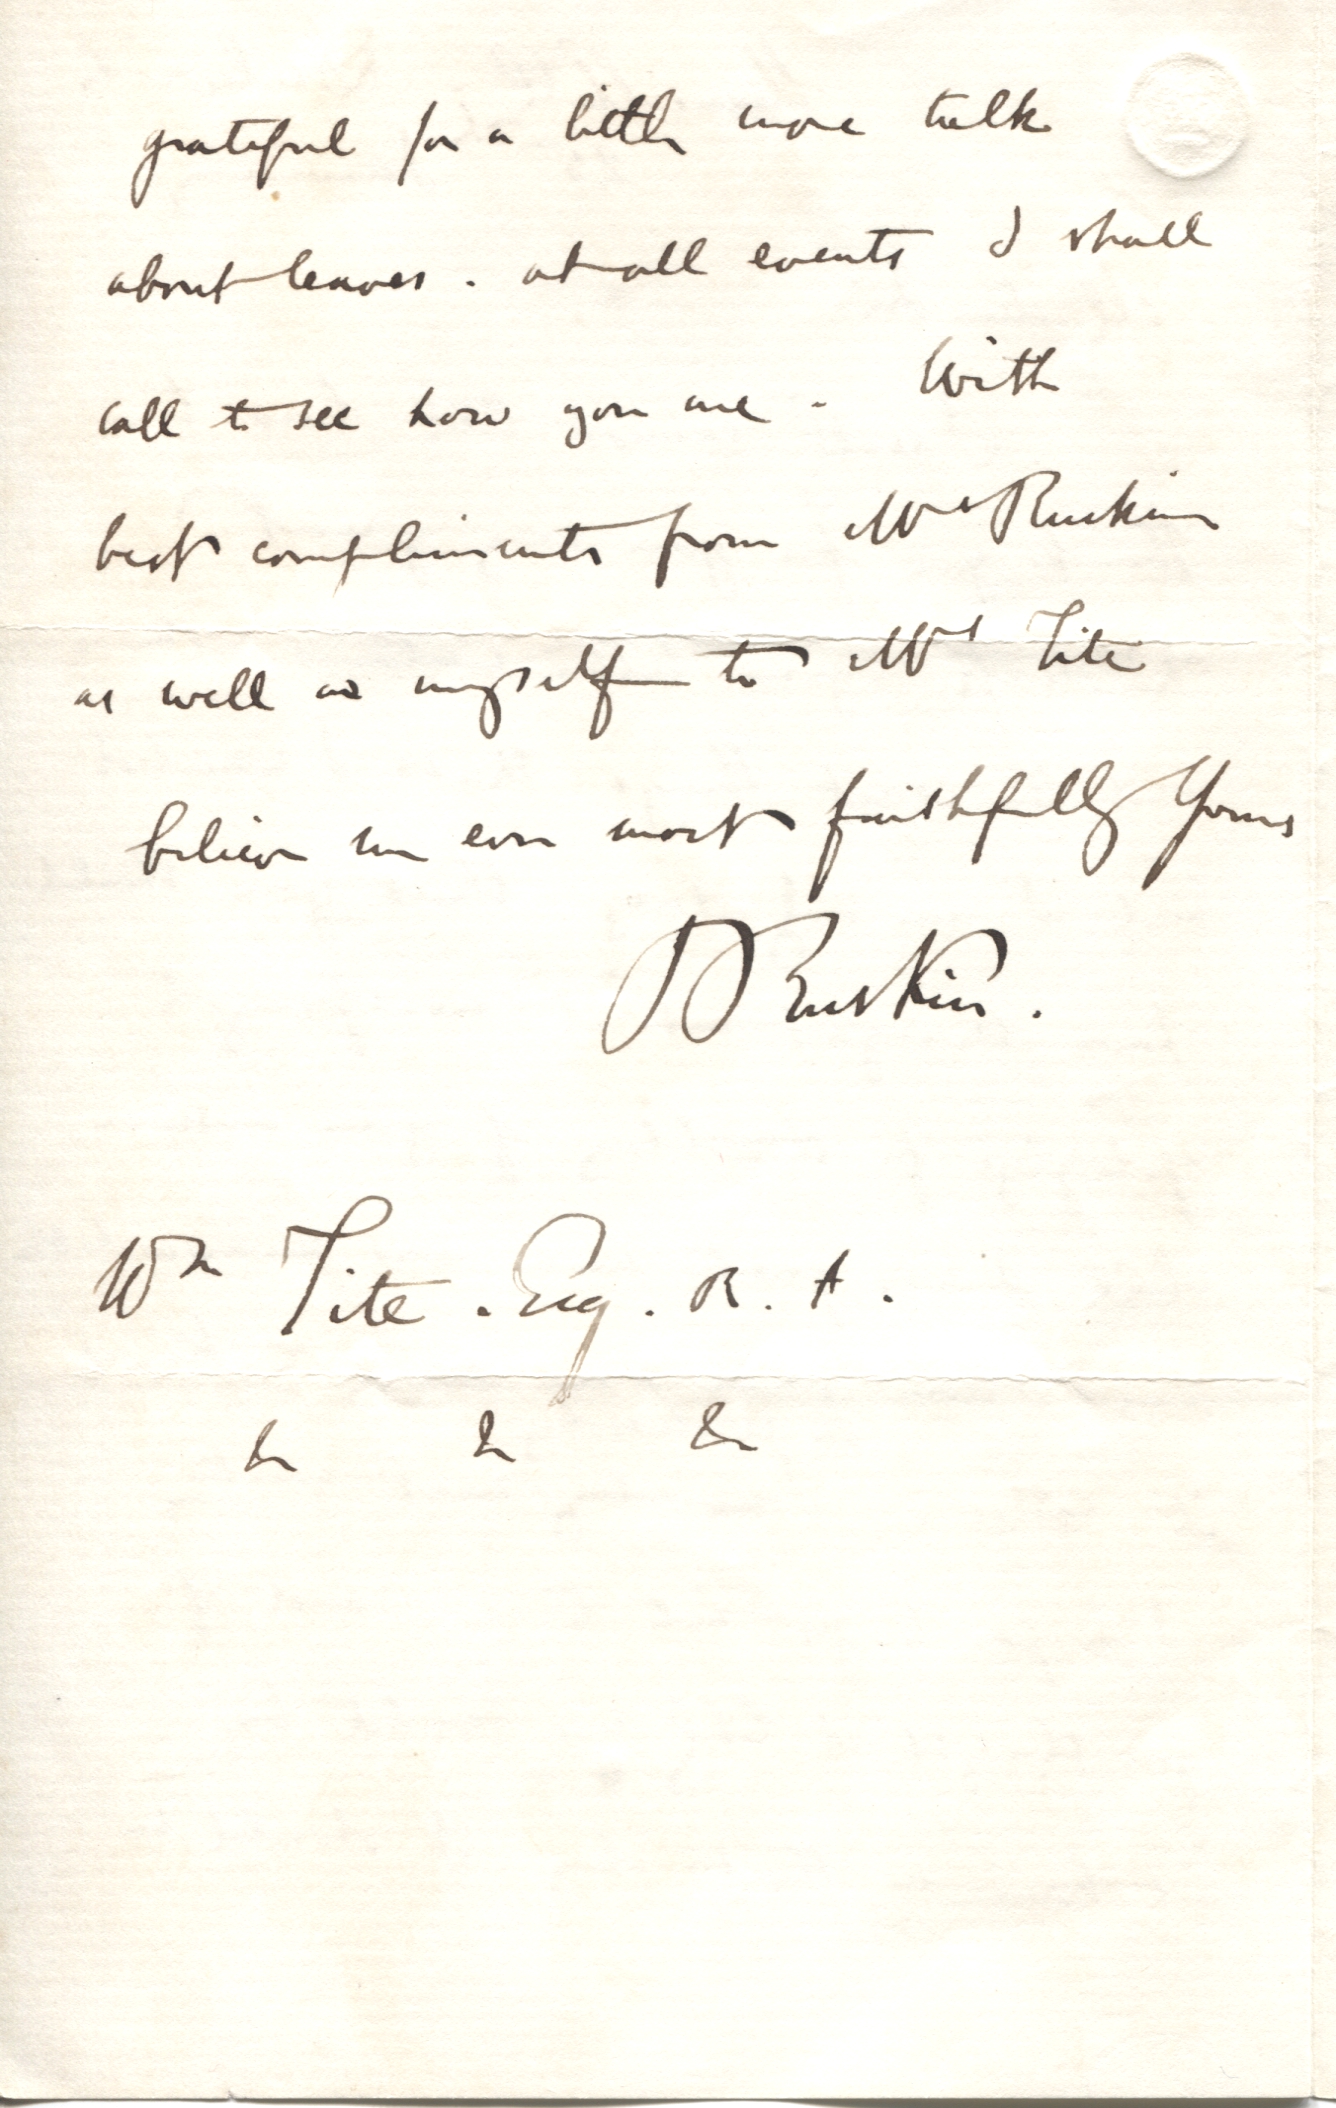 grateful for a little more talk
about leaves. at all events I shall
call to see how you are. With
best compliments from Mrs Ruskin
as well as myself to Mrs Tite
believe me ever most faithfully Yours
J Ruskin.
Wm Tite. Esq. R. A.
&c &c &c